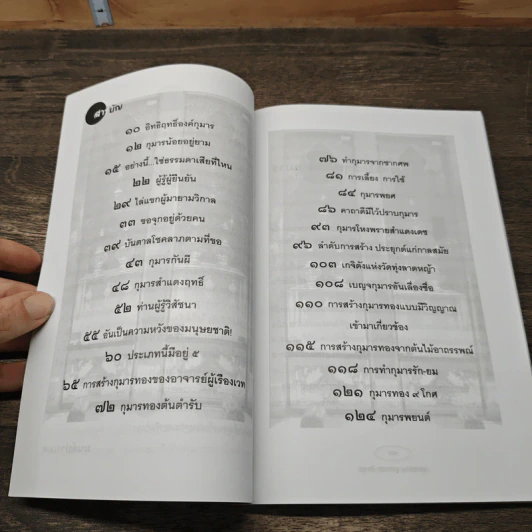 สารบัญ
๑๐ อิทธิฤทธิ์องค์กุมาร
๑๒ กุมารน้อยอยู่ยาม
๑๕ อย่างนี้..ใช่ธรรมดาเสียที่ไหน
๒๒ ผู้รู้ผู้ยืนยัน
๒๙ ไล่แขกผู้มายามวิกาล
๓๓ ขอจุกอยู่ด้วยคน
๓๙ บันดาลโชคลาภตามที่ขอ
๔๓ กุมารกันผี
๔๘ กุมารสำแดงฤทธิ์
๕๒ ท่านผู้รู้วิสัชนา
๕๕ อันเป็นความหวังของมนุษยชาติ!
๖๐ ประเภทนี้มีอยู่ ๕
๖๕ การสร้างกุมารทองของอาจารย์ผู้เรืองเวท
๗๒ กุมารทองต้นตำรับ
๗๖ ทำกุมารจากซากศพ
๘๑ การเลี้ยง การใช้
๘๔ กุมารพยศ
๘๖ คาถาดีมีไว้ปราบกุมาร
๙๓ กุมารโหงพรายสำแดงเดช
๙๖ ลำดับการสร้าง ประยุกต์แก่กาลสมัย
๑๐๓ เกจิดังแห่งวัดทุ่งลาดหญ้า
๑๐๘ เบญจกุมารอันเลื่องชื่อ
๑๑๐ การสร้างกุมารทองแบบมีวิญญาณ
เข้ามาเกี่ยวข้อง
๑๑๕ การสร้างกุมารทองจากต้นไม้อาถรรพณ์
๑๑๘ การทำกุมารรัก-ยม
๑๒๑ กุมารทอง ๙ โกศ
๑๒๔ กุมารพยนต์